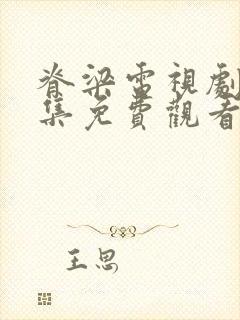 脊梁電視劇
集免費觀看
王思